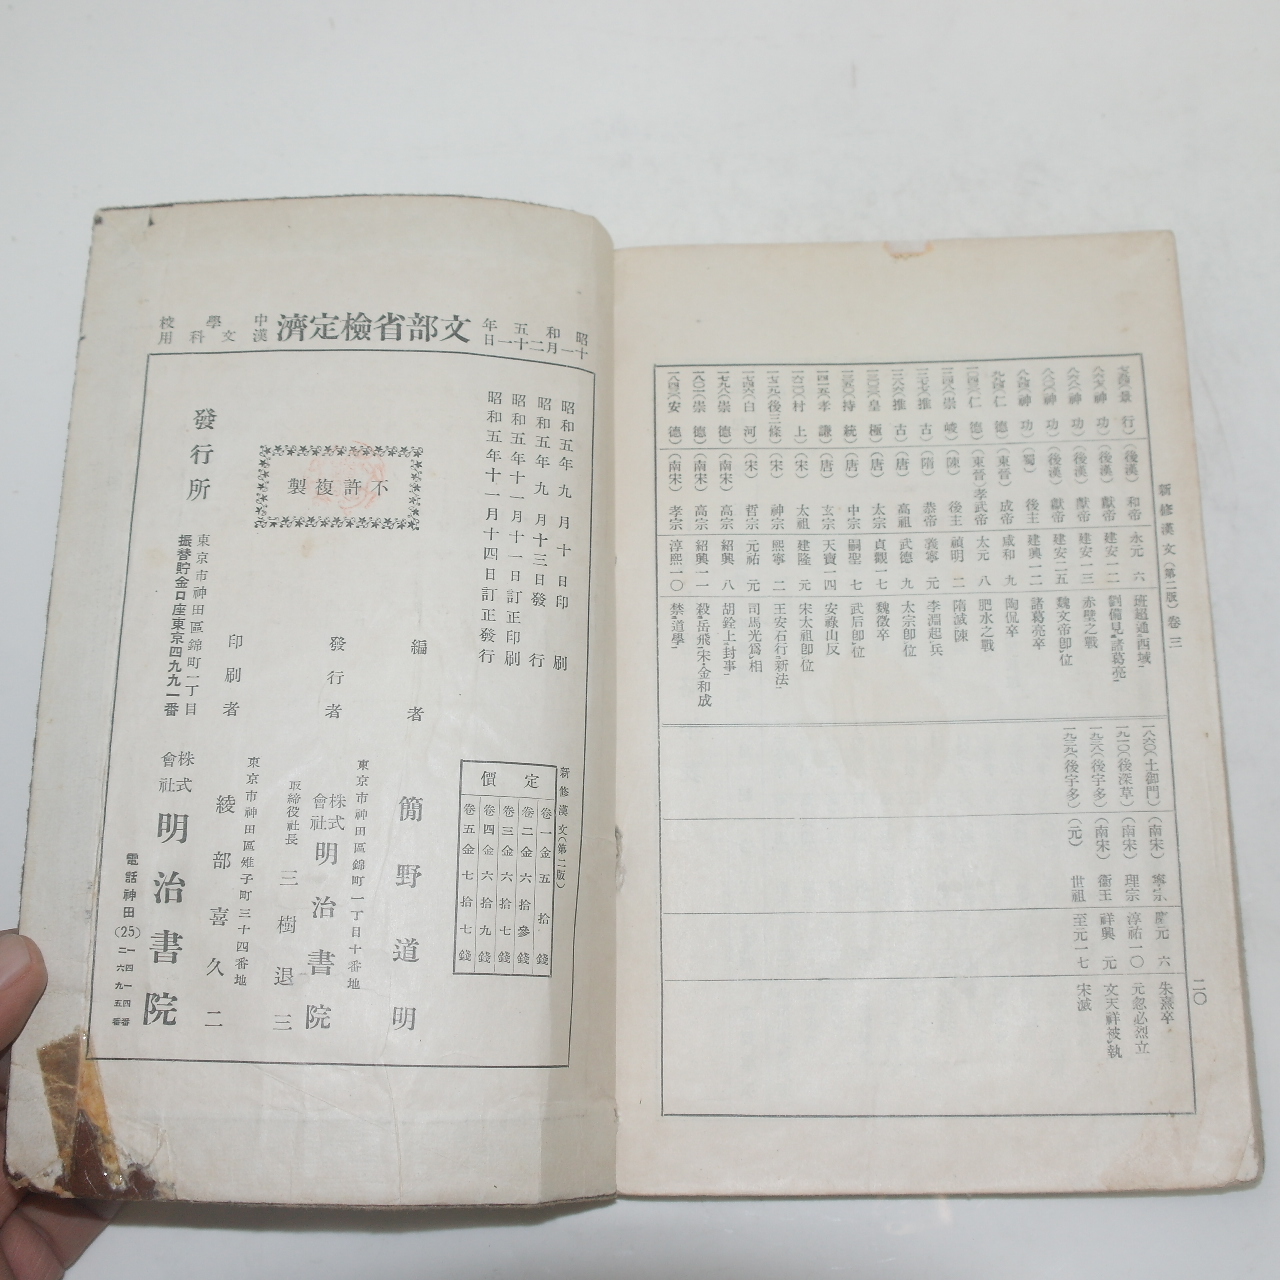 新修漢文(第二版)卷三
二〇
(景行)(後漢)和帝 永元 六 班超通西域
(神功)(後漢)獻帝 建安一二 劉備見諸葛亮
(神功)(後漢)獻帝 建安一三 赤壁之戰
(神功)(後漢)獻帝 建安二五 魏文帝卽位
(神功)(蜀)後主 建興一二 諸葛亮卒
(仁德)(東晉)成帝 咸和 九 陶侃卒
(仁德)(東晉)孝武帝 太元 八 肥水之戰
(崇峻)(陳)後主 禎明 二 隋滅陳
(推古)(隋)恭帝 義寧 元 李淵起兵
(推古)(唐)高祖 武德 九 太宗卽位
(皇極)(唐)太宗 貞觀一七 魏徵卒
(持統)(唐)中宗 嗣聖 七 武后卽位
(孝謙)(唐)玄宗 天寶一四 安祿山反
(村上)(宋)太祖 建隆 元 宋太祖卽位
(後三條)(宋)神宗 熙寧 二 王安石行新法
(白河)(宋)哲宗 元祐 元 司馬光爲相
(崇德)(南宋)高宗 紹興 八 胡銓上封事
(崇德)(南宋)高宗 紹興一一 殺岳飛宋金和成
(安德)(南宋)孝宗 淳熙一〇 禁道學
一八六〇(土御門)(南宋)寧宗 慶元 六 朱熹卒
一九一〇(後深草)(南宋)理宗 淳祐一〇 元忽必烈立
一九三八(後宇多)(南宋)衞王 祥興 元 文天祥被執
一九三九(後宇多)(元)世祖 至元一七 宋滅
昭和五年十一月二十一日
文部省檢定濟
中學校漢文科用
昭和五年九月十日印刷
昭和五年九月十三日發行
昭和五年十一月十一日訂正印刷
昭和五年十一月十四日訂正發行
新修漢文(第二版)
定價
卷一金五拾錢
卷二金六拾參錢
卷三金六拾七錢
卷四金六拾九錢
卷五金七拾七錢
不許複製
編者 簡野道明
東京市神田區錦町一丁目十番地
發行者 株式會社 明治書院
取締役社長 三樹退三
東京市神田區雉子町三十四番地
印刷者 綾部喜久二
發行所
東京市神田區錦町一丁目
振替貯金口座東京四九九一番
株式會社 明治書院
電話神田(25)